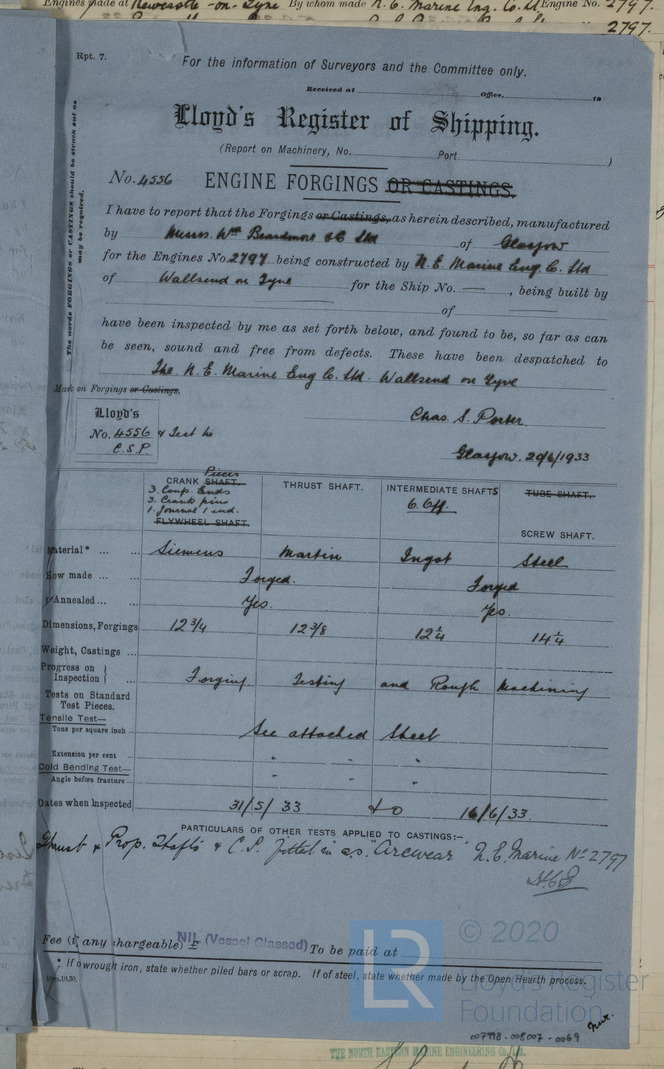 Engines made at Newcastle-on-Tyne By whom made N.E. Marine Eng. Co. Ld Engine No. 2797.
2797.
Rpt. 7.
For the information of Surveyors and the Committee only.
Received at Office, 19
Lloyd's Register of Shipping.
(Report on Machinery, No. Port )
No. 4556 ENGINE FORGINGS OR CASTINGS.
The words FORGINGS or CASTINGS should be struck out as may be required.
I have to report that the Forgings or Castings, as herein described, manufactured
by Messrs. Wm Beardmore & Co Ltd of Glasgow
for the Engines No. 2797 being constructed by N.E. Marine Eng. Co. Ltd
of Wallsend on Tyne for the Ship No. — , being built by
of
have been inspected by me as set forth below, and found to be, so far as can
be seen, sound and free from defects. These have been despatched to
The N.E. Marine Eng Co. Ltd. Wallsend on Tyne
Mark on Forgings or Castings.
Lloyd's
No. 4556 & Test No
C.S.P
Chas S. Porter
Glasgow. 20/6/1933
Pieces
CRANK SHAFT. THRUST SHAFT. INTERMEDIATE SHAFTS TUBE SHAFT.
3. Coup. Ends
3. Crank pins
1. Journal 1 end.
FLYWHEEL SHAFT.
6. Off.
SCREW SHAFT.
Material* ... ... Siemens Martin Ingot Steel
How made ... ... Forged. Forged
Annealed ... ... Yes. Yes.
Dimensions, Forgings 12 3/4 12 3/8 12 1/4 14 1/4
Weight, Castings ...
Progress on Inspection } ... Forging Testing and Rough Machining
Tests on Standard
Test Pieces.
Tensile Test—
Tons per square inch ... See attached Sheet
Extension per cent ... " " "
Cold Bending Test—
Angle before fracture ... " " "
Dates when Inspected 31/5/33 to 16/6/33.
PARTICULARS OF OTHER TESTS APPLIED TO CASTINGS:—
Thrust & Prop. Shafts & C.P. fitted in s.s. "Arcwear" N.E. Marine No 2797
Fee (if any chargeable) £ NIL (Vessel Classed) To be paid at
* If of wrought iron, state whether piled bars or scrap. If of steel, state whether made by the Open Hearth process.
LR © 2020
Lloyd's Register
Foundation
007998-008007-0069
THE NORTH EASTERN MARINE ENGINEERING CO. LTD.